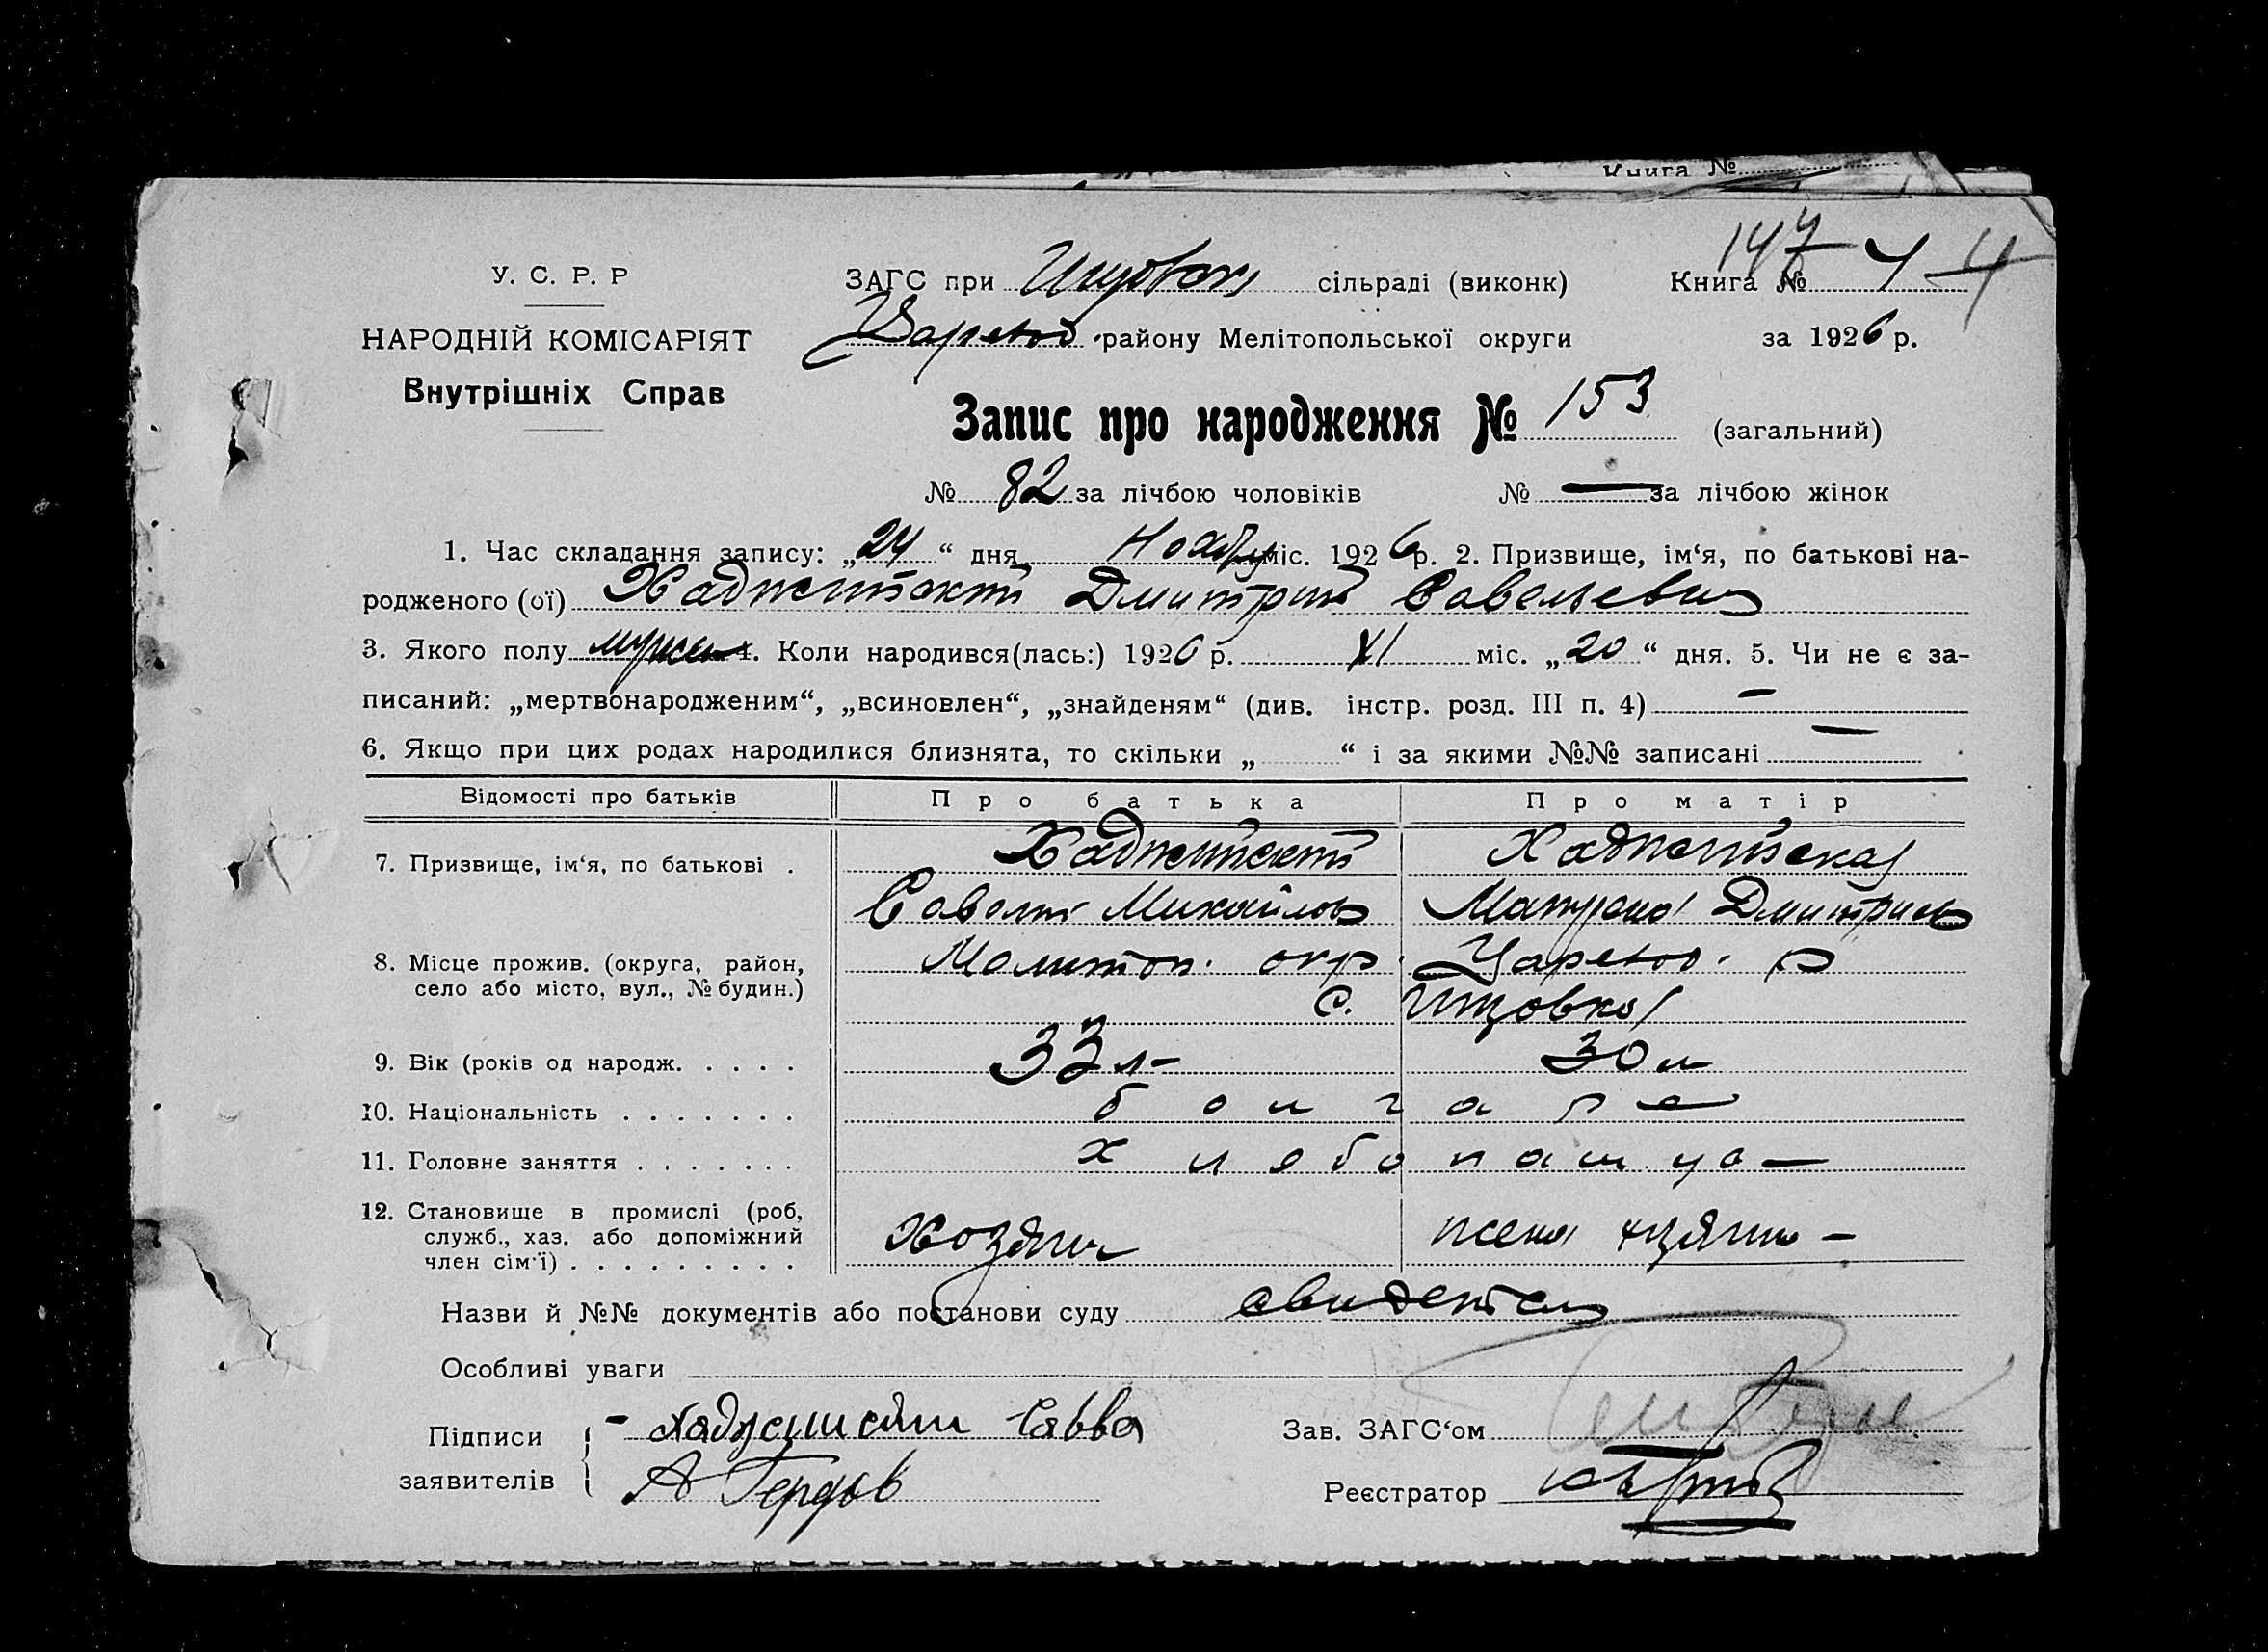 Книга №
147 4 4
У. С. Р. Р ЗАГС при сільраді (виконк) Книга №
НАРОДНІЙ КОМІСАРІЯТ Царевод. району Мелітопольської округи за 1926 р.
Внутрішніх Справ
Запис про народження № 153 (загальний)
№ 82 за лічбою чоловіків № — за лічбою жінок
1. Час складання запису: „24“ дня Ноября міс. 1926 р. 2. Призвище, ім‘я, по батькові на-
родженого (ої) Дмитрий Савельевич
3. Якого полу мужск 4. Коли народився(лась:) 1926 р. XI міс. „20“ дня. 5. Чи не є за-
писаний: „мертвонародженим“, „всиновлен“, „знайденям“ (див. інстр. розд. III п. 4) —
6. Якщо при цих родах народилися близнята, то скільки „ “ і за якими №№ записані —
Відомості про батьків Про батька Про матір
7. Призвище, ім‘я, по батькові .
Михайлов Дмитриев
8. Місце прожив. (округа, район, Мелитоп. окр. Царевод. р
село або місто, вул., № будин.) с.
9. Вік (років од народж. . . . . 33 л- 30 л
10. Національність . . . . . . . болгаре
11. Головне заняття . . . . . . . хлебопашца —
12. Становище в промислі (роб, Хозяин жена хозяина —
служб., хаз. або допоміжний
член сім‘ї) . . . . . . . . .
Назви й №№ документів або постанови суду
Особливі уваги
Підписи Савва Зав. ЗАГС‘ом
заявителів Реєстратор